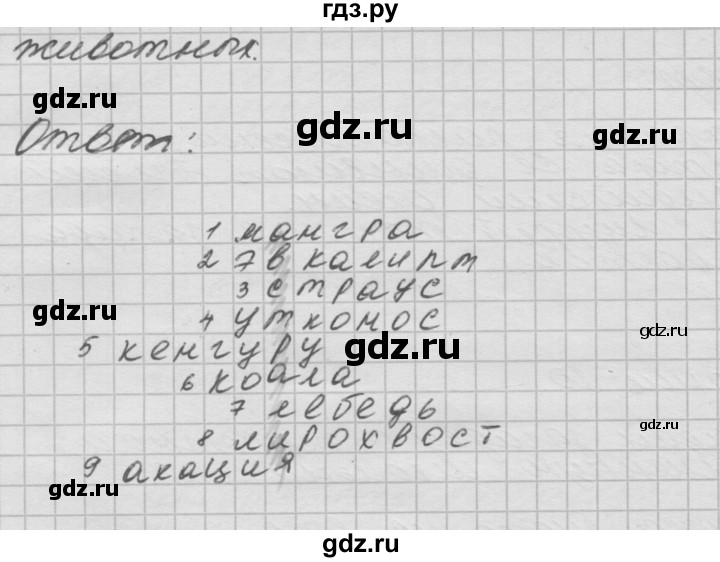 гдз.ру
животных.
gdz.ru
gdz.ru
gdz.ru
Ответ:
1 мангра
2 7вкалипт
3 страус
gdz.ru
4 утконос
gdz.ru
5 кенгуру
gdz.ru
6 коала
7 лебедь
8 лирохвост
9 акация
gdz.ru
gdz.ru
gdz.ru